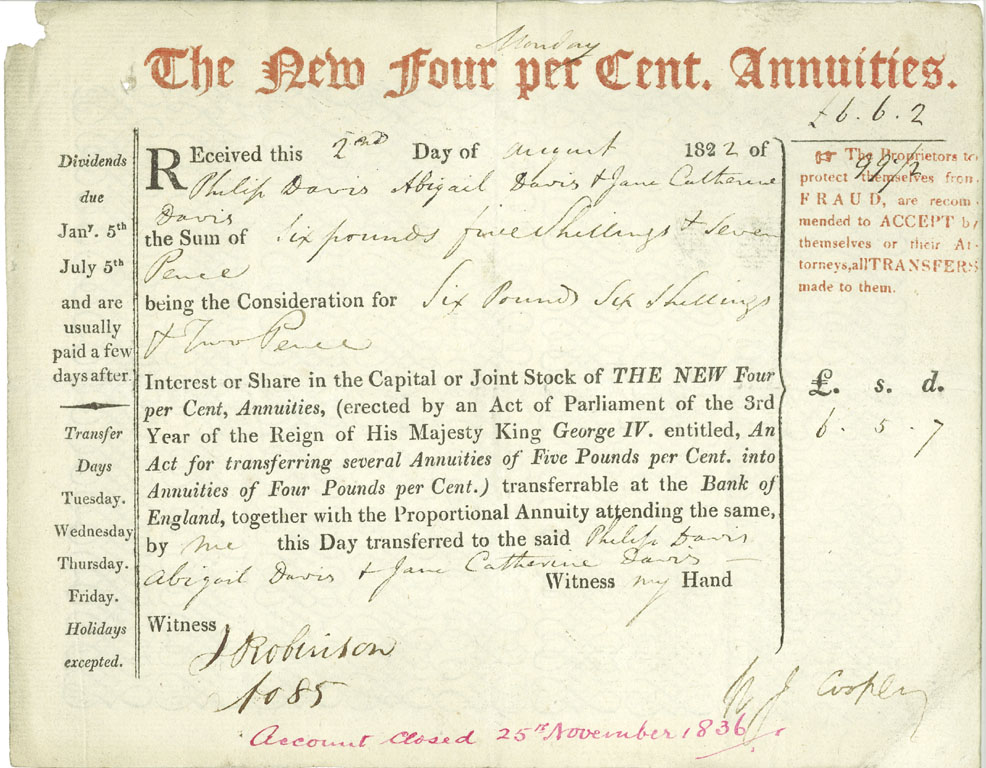 Monday
The New Four per Cent. Annuities.
£6.6.2
99 1/2
Dividends
due
Janʸ. 5ᵗʰ
July 5ᵗʰ
and are
usually
paid a few
days after.
Transfer
Days
Tuesday.
Wednesday
Thursday.
Friday.
Holidays
excepted.
REceived this 2nd Day of august 1822 of
Philip Davis Abigail Davis & Jane Catherine
Davis
the Sum of Six pounds five Shillings & Seven
Pence
being the Consideration for Six Pounds Six Shillings
& Two Pence
Interest or Share in the Capital or Joint Stock of THE NEW Four
per Cent, Annuities, (erected by an Act of Parliament of the 3rd
Year of the Reign of His Majesty King George IV. entitled, An
Act for transferring several Annuities of Five Pounds per Cent. into
Annuities of Four Pounds per Cent.) transferrable at the Bank of
England, together with the Proportional Annuity attending the same,
by me this Day transferred to the said Philip Davis
Abigail Davis & Jane Catherine Davis
Witness my Hand
Witness
J Robinson
1085
☞ The Proprietors to
protect themselves from
FRAUD, are recom-
mended to ACCEPT by
themselves or their At-
torneys, all TRANSFERS
made to them.
£. s. d.
6 . 5 . 7
J
Account Closed 25th November 1836